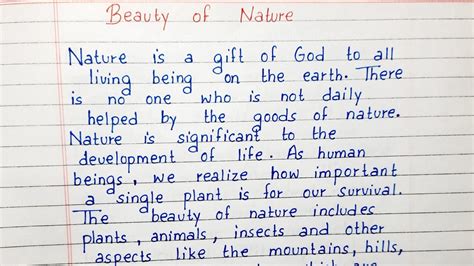 Beauty of Nature
Nature is a gift of God to all
living being on the earth. There
is no one who is not daily
helped by the goods of nature.
Nature is significant to the
development of life. As human
beings, we realize how important
a single plant is for our survival.
The beauty of nature includes
plants, animals, insects and other
aspects like the mountains, hills,